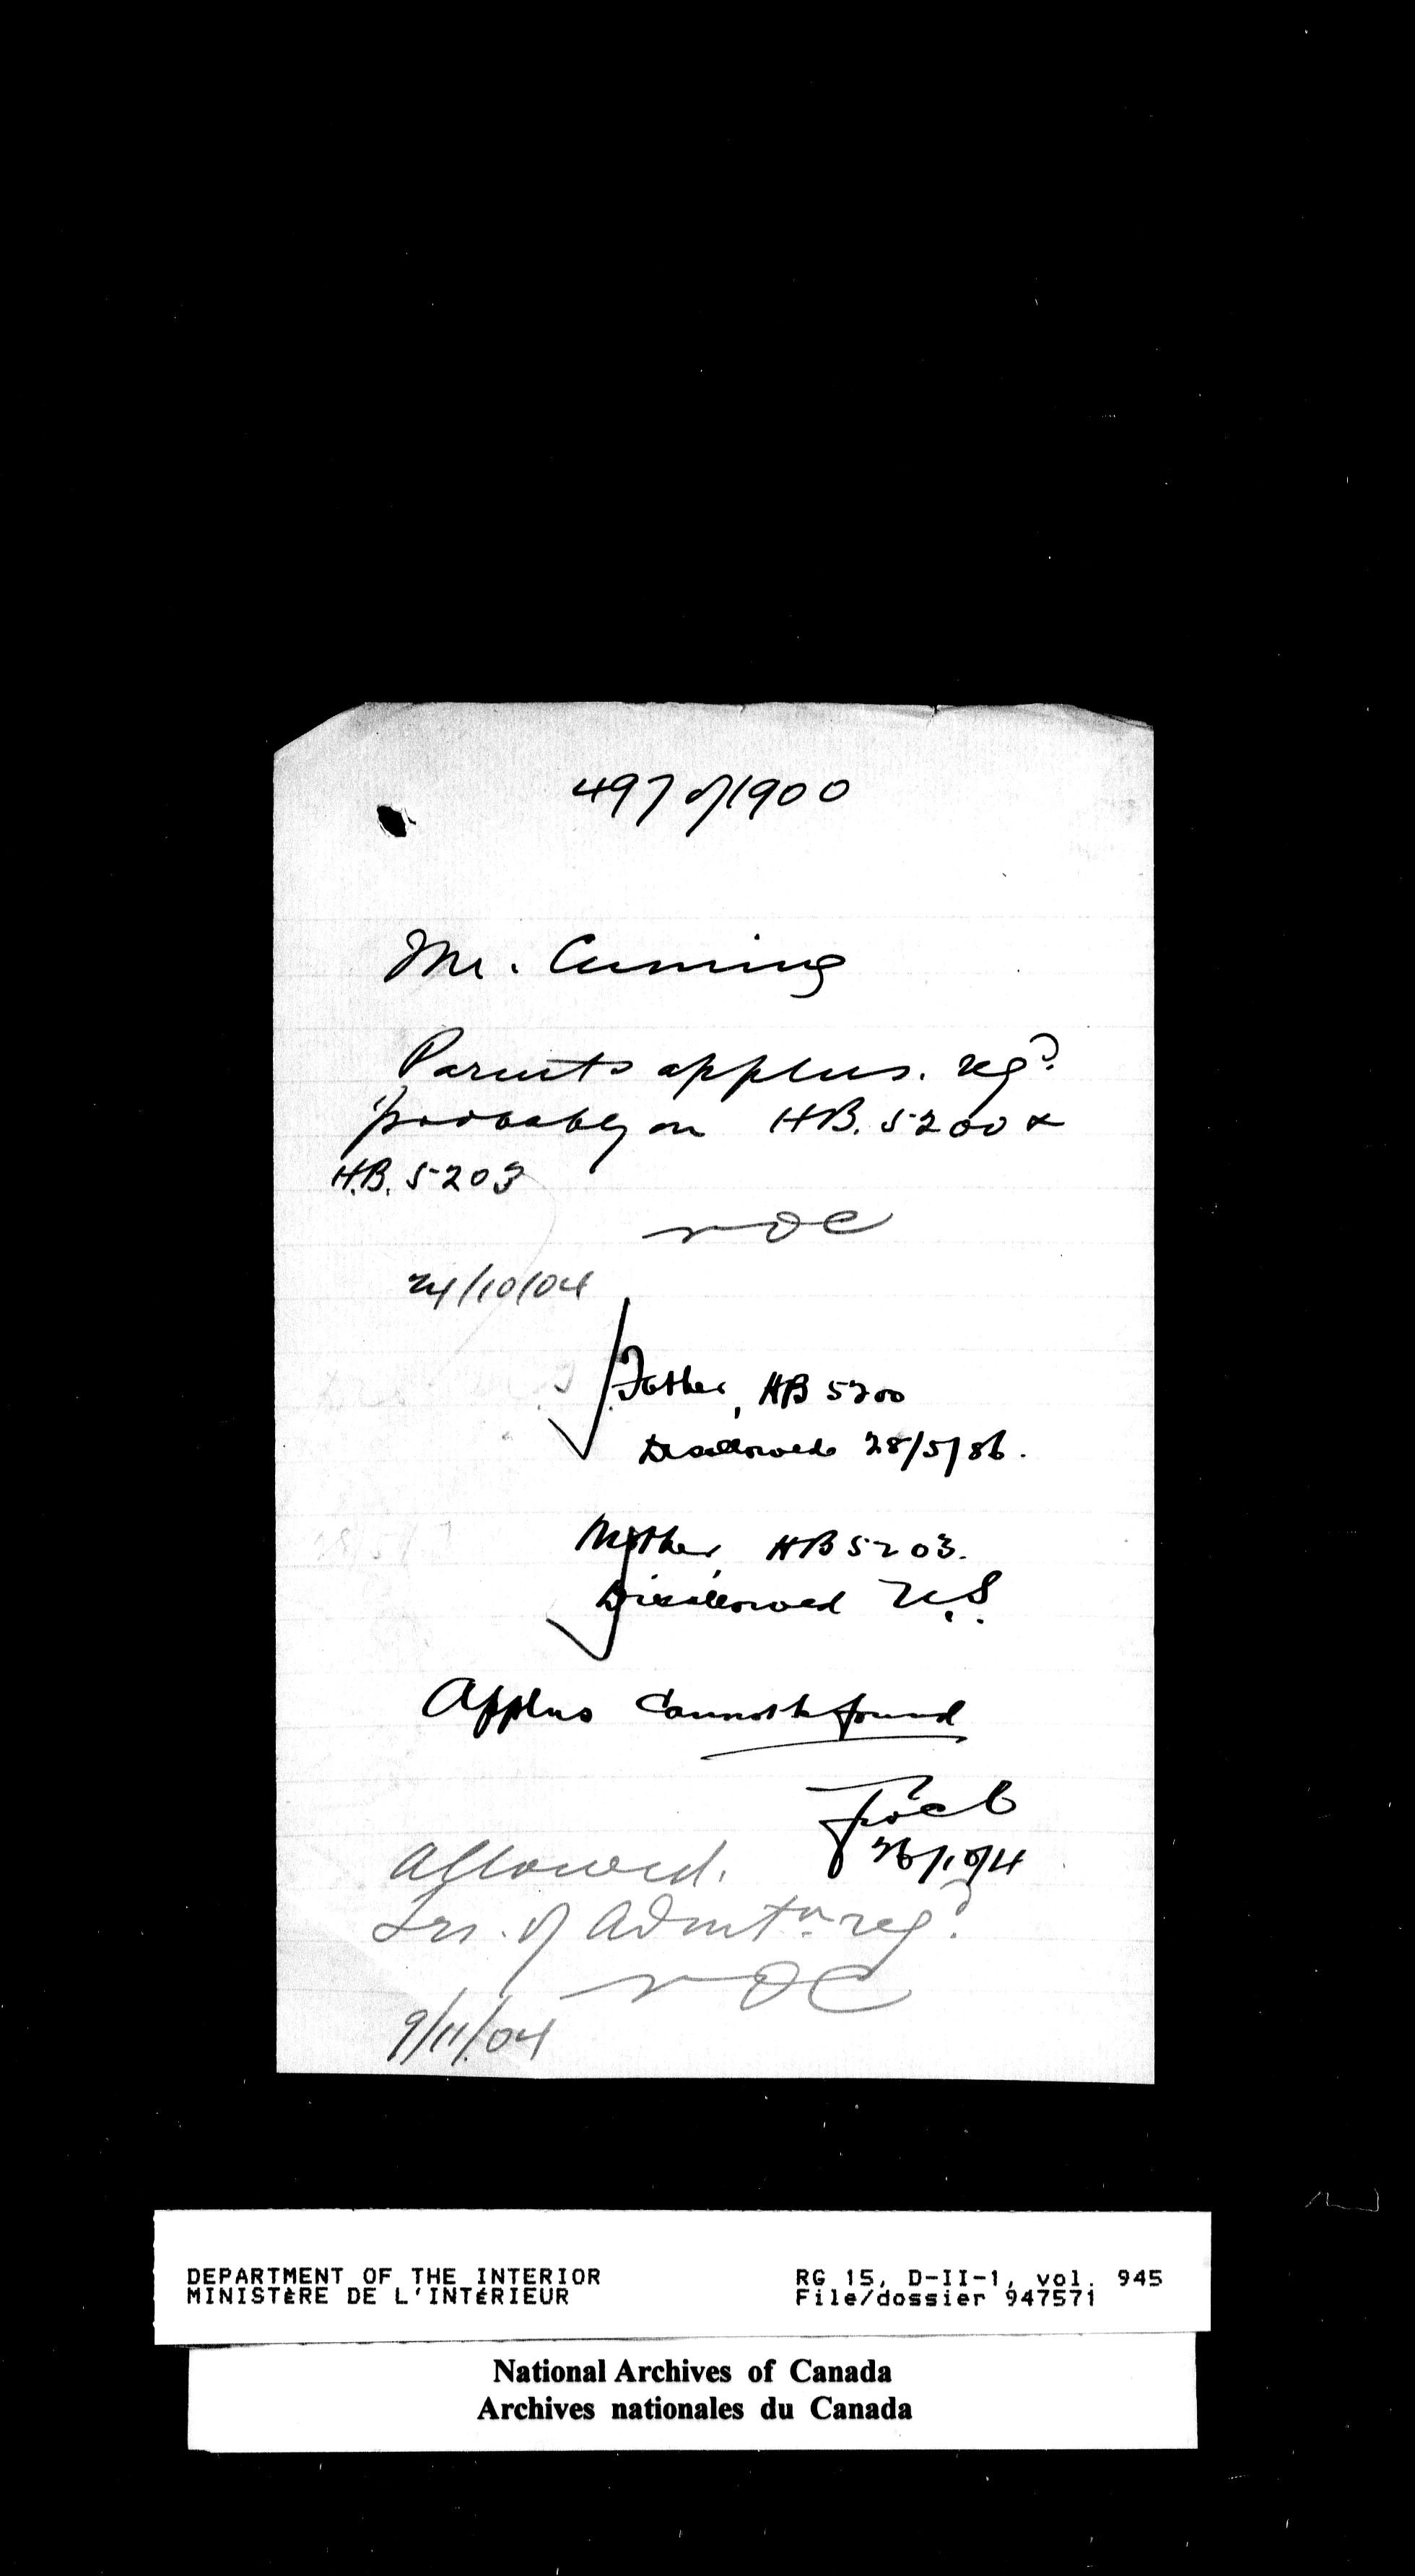 497 of 1900
Mr. Cuming
Parents applns. reqd.
probably on HB. 5200 &
H.B. 5203
NOC
24/10/04
Father, HB 5200
Disallowed 28/5/86.
Mother, HB 5203.
Disallowed U.S.
Applns Cannot be found
26/10/4
Allowed.
Lrs. of Admtn. reqd.
NOC
9/11/04
DEPARTMENT OF THE INTERIOR
MINISTÈRE DE L'INTÉRIEUR
RG 15, D-II-1, vol. 945
File/dossier 947571
National Archives of Canada
Archives nationales du Canada